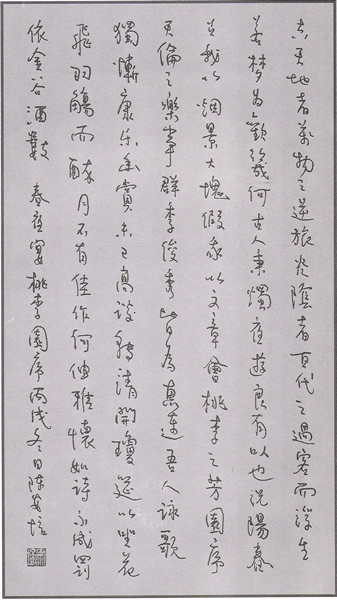 夫天地者萬物之逆旅光陰者百代之過客而浮生
若夢為歡幾何古人秉燭夜遊良有以也況陽春
召我以烟景大塊假我以文章會桃李之芳園序
天倫之樂事群季俊秀皆為惠連吾人詠歌
獨慚康樂幽賞未已高談轉清開瓊筵以坐花
飛羽觴而醉月不有佳作何伸雅懷如詩不成罰
依金谷酒數 春夜宴桃李園序丙戌冬日陳